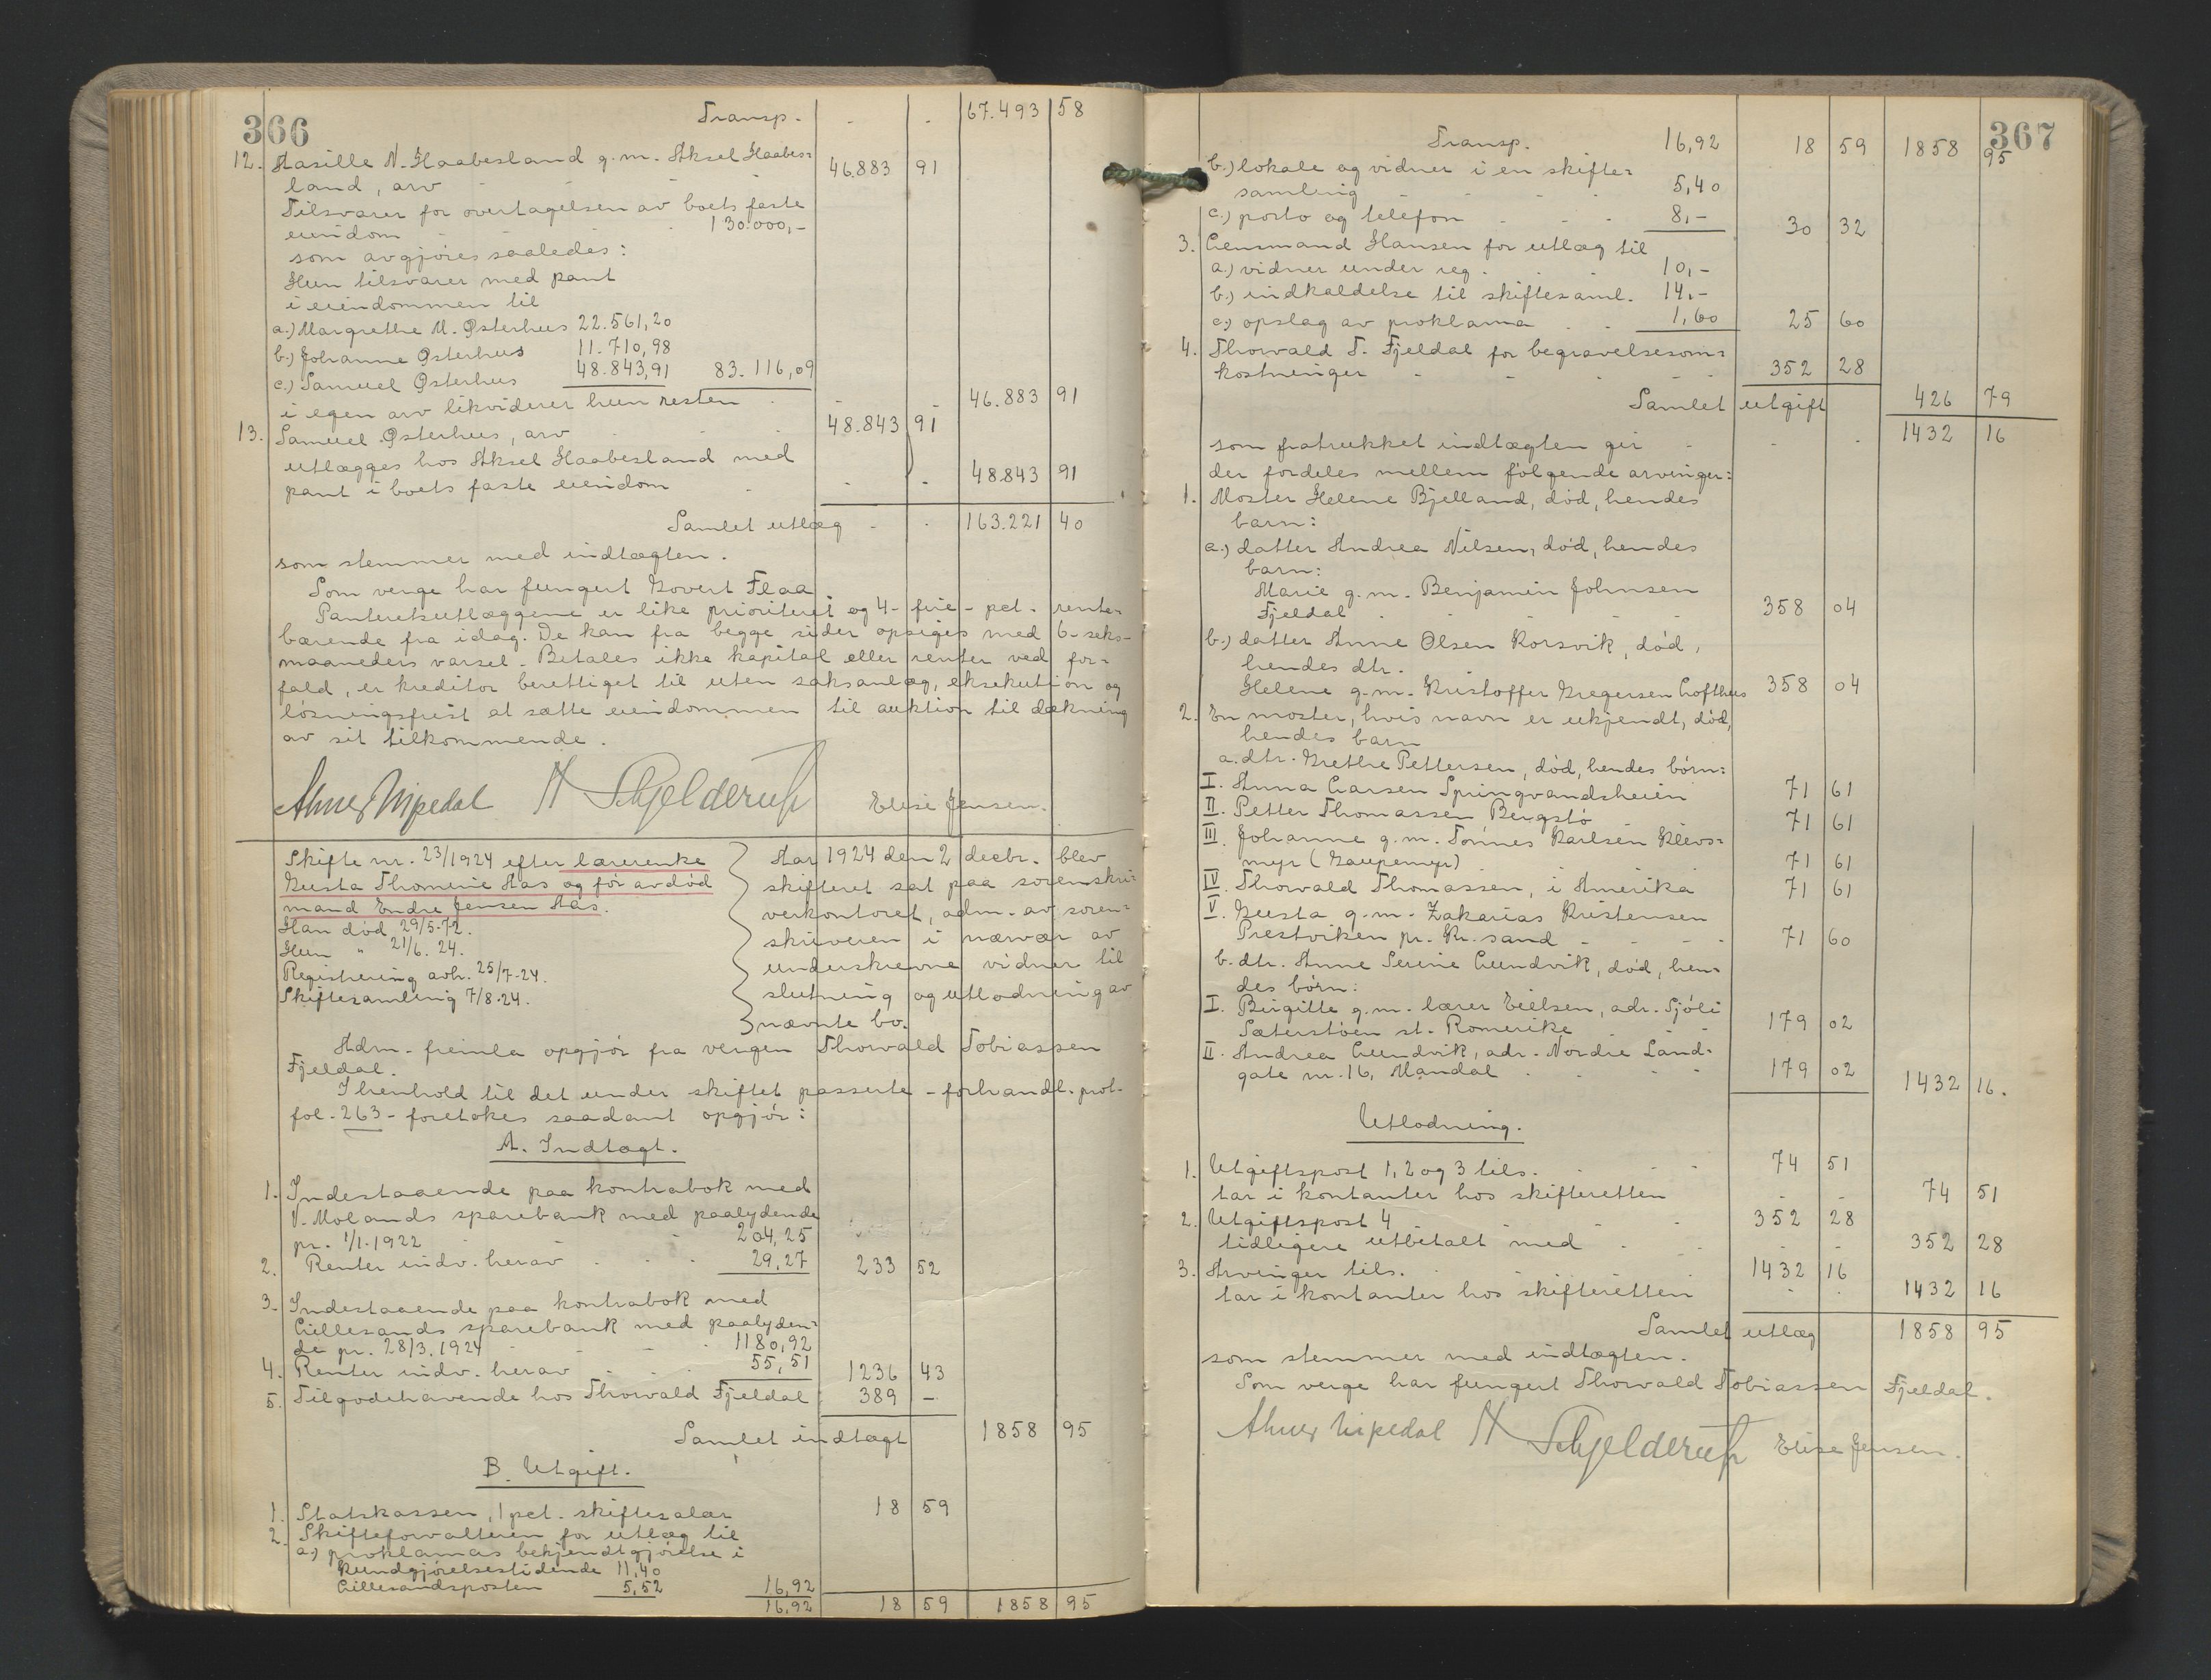 366
Transp. - - 67.493 58
12. Aasille N. Haabesland g.m. Aksel Haabes=
land, arv - - - 46.883 91
Tilsvarer for overtagelsen av boets faste
eiendom - - 130.000,-
som avgjøres saaledes:
Hun tilsvarer med pant
i eiendommen til
a.) Margrethe M. Østerhus 22.561,20
b.) Johanne Østerhus 11.710,98
c.) Samuel Østerhus 48.843,91 83.116,09
i egen arv likviderer hun resten - - 46.883 91
13. Samuel Østerhus, arv - - 48.843 91
utlægges hos Aksel Haabesland med
pant i boets faste eiendom - - - 48.843 91
Samlet utlæg - - 163.221 40
som stemmer med indtægten.
Som verge har fungert Govert Flaa.
Panteretsutlæggene er like prioritert og 4- fire - pct. rente-
bærende fra idag. De kan fra begge sider opsiges med 6-seks-
maaneders varsel. Betales ikke kapital eller renter ved for-
fald, er kreditor berettiget til uten saksanlæg, eksekution og
løsningsfrist at sætte eiendommen til auktion til dækning
av sit tilkommende.
N Schjelderup Elise Jensen.
Skifte nr. 23/1924 efter lærerenke
Gusta Thomine Aas og før avdød
mand Endre Jensen Aas.
Han død 29/5-72.
Hun " 21/6. 24.
Registrering avh. 25/7-24.
Skiftesamling 7/8-24.
Aar 1924 den 2 decbr. blev
skifteret sat paa sorenskri=
verkontoret, adm. av soren=
skriveren i nærvær av
underskrevne vidner til
slutning og utlodning av
nævnte bo.
Adm. fremla opgjør fra vergen Thorvald Tobiassen
Fjeldal.
I henhold til det under skiftet passerte - forhandl. prot.
fol. 263 - foretokes saadant opgjør:
A. Indtægt.
1. Indestaaende paa kontrabok med
V. Molands sparebank med paalydende
pr. 1/1-1922 - - 204,25
2. Renter indv. herav - - - 29,27 233 52
3. Indestaaende paa kontrabok med
Lillesands sparebank med paalyden=
de pr. 28/3. 1924 - - - 1180,92
4. Renter indv. herav - - 55,51 1236 43
5. Tilgodehavende hos Thorvald Fjeldal 389 -
Samlet indtægt 1858 95
B. Utgift.
1. Statskassen, 1 pct. skiftesalær 18 59
2. Skifteforvalteren for utlæg til
a.) proklamas bekjendtgjørelse i
Kundgjørelsestidende 11,40
Lillesandsposten 5,52 16,92
16,92 18 59 1858 95
367
Transp. 16,92 18 59 1858 95
b.) lokale og vidner i en skifte=
samling - - - 5,40
c.) porto og telefon - - - 8,- 30 32
3. Lensmand Hansen for utlæg til
a.) vidner under reg. - - 10,-
b.) indkaldelse til skiftesaml. 14,-
c.) opslag av proklama - - 1,60 25 60
4. Thorvald T. Fjeldal for begravelsesom=
kostninger - - - - 352 28
Samlet utgift 426 79
som fratrukket indtægten gir - - - 1432 16
der fordeles mellem følgende arvinger:
1. Moster Helene Bjelland, død, hendes
barn:
a.) datter Andrea Nilsen, død, hendes
barn:
Marie g.m. Benjamin Johnsen
Fjeldal - - - - 358 04
b.) datter Anne Olsen Korsvik, død,
hendes dtr.
Helene g.m. Kristoffer Gregersen Lofthus 358 04
2. En moster, hvis navn er ukjendt, død,
hendes barn
a. dtr. Grethe Pettersen, død, hendes børn:
I. Anna Larsen Springvandsheien 71 61
II. Petter Thomassen Bergstø 71 61
III. Johanne g.m. Tønnes Karlsen Klevs=
myr (Gaupemyr) 71 61
IV. Thorvald Thomassen, i Amerika 71 61
V. Gusta g.m. Zakarias Kristensen
Prestviken pr. Kr.sand - - - 71 60
b. dtr. Anne Serine Lundvik, død, hen=
des børn:
I. Birgitte g.m. lærer Eielsen, adr. Sjøli
Sæterstøen st. Romerike - - 179 02
II. Andrea Lundvik, adr. Nordre Land=
gate nr. 16, Mandal - - - 179 02 1432 16.
Utlodning.
1. Utgiftspost 1, 2 og 3 tils. - - 74 51
tar i kontanter hos skifteretten - - 74 51
2. Utgiftspost 4 - - - 352 28
tidligere utbetalt med - - - - 352 28
3. Arvinger tils. - - 1432 16
tar i kontanter hos skifteretten - - 1432 16
Samlet utlæg 1858 95
som stemmer med indtægten.
Som verge har fungert Thorvald Tobiassen Fjeldal.
N Schjelderup Elise Jensen.